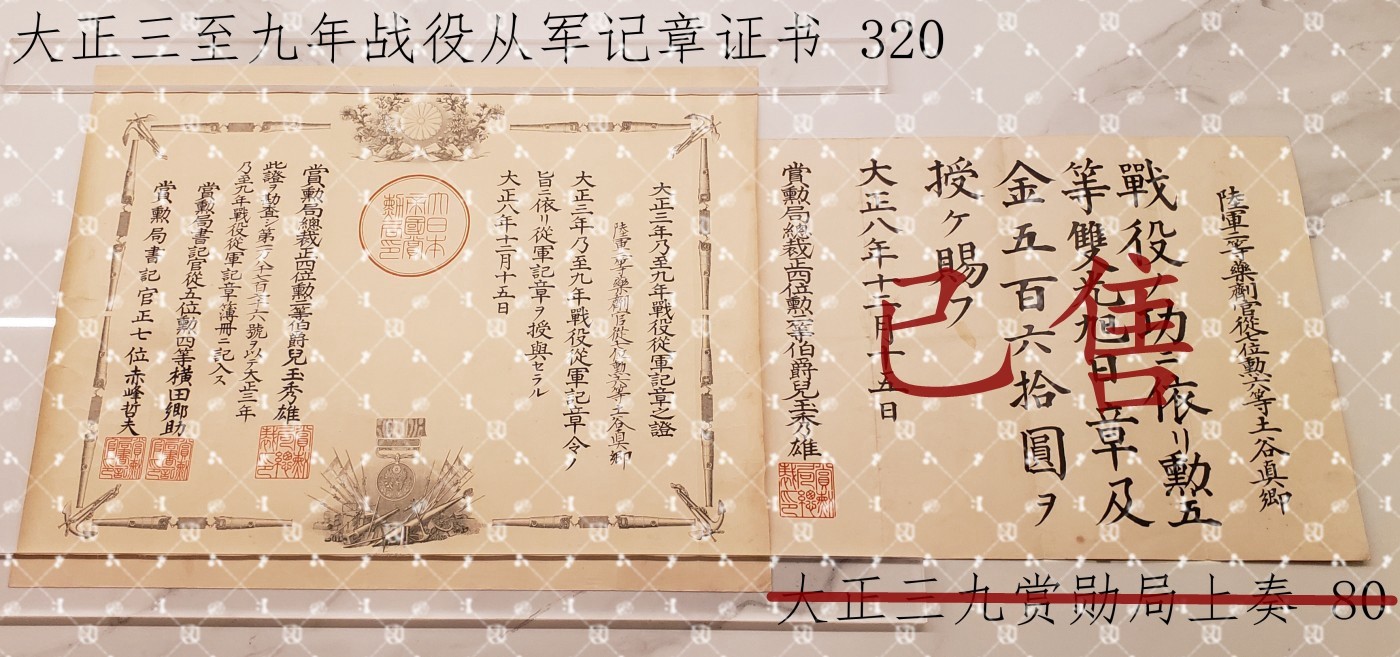 大正三至九年战役从军记章证书 320
大正三年乃至九年戰役從軍記章之證
陸軍一等藥劑官從七位勳六等土谷真鄉
大正三年乃至九年戰役從軍記章令ノ
旨ニ依リ從軍記章ヲ授與セラル
大正八年十二月十五日
大日本
帝國賞
勳局印
賞勳局總裁正四位勳二等伯爵兒玉秀雄
此證ヲ勘査シ第
號ヲ以テ大正三年
乃至九年戰役從軍記章簿冊ニ記入ス
賞勳局書記官從五位勳四等橫田鄉助
賞勳局書記官正七位赤峰哲夫
陸軍一等藥劑官從七位勳六等土谷真鄉
戰役ノ功ニ依リ勳五
等雙光旭日章及
金五百六拾圓ヲ
授ケ賜フ
大正八年十二月十五日
賞勳局總裁正四位勳二等伯爵兒玉秀雄
已售
大正三九赏勋局上奏 80